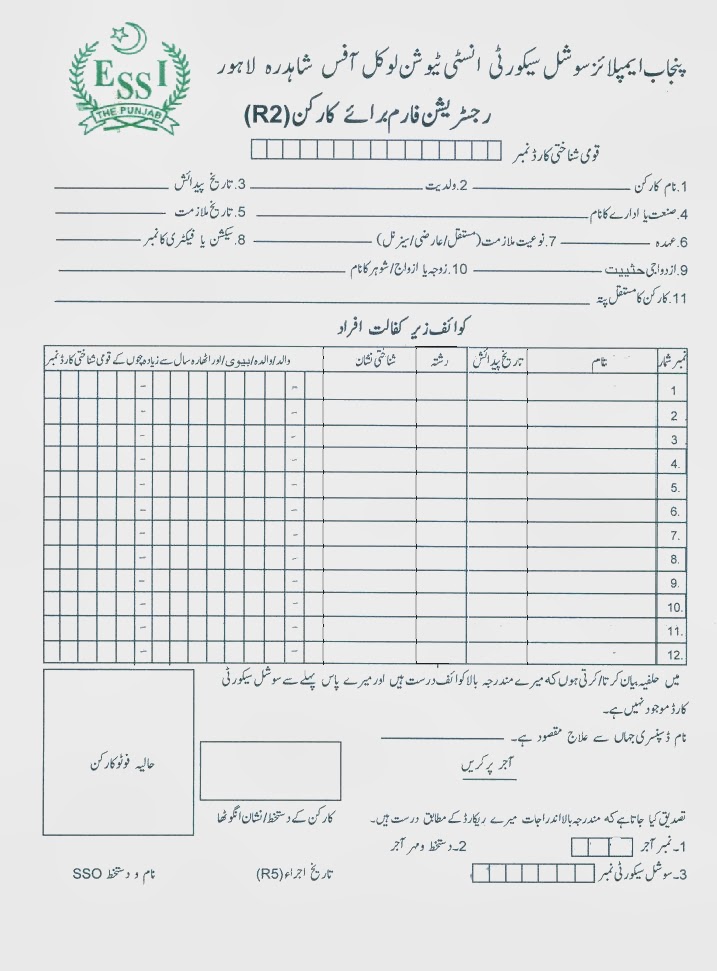 ESSI
THE PUNJAB
پنجاب ایمپلائز سوشل سیکورٹی انسٹی ٹیوشن لوکل آفس شاہدرہ لاہور
رجسٹریشن فارم برائے کارکن (R2)
قومی شناختی کارڈ نمبر
1. نام کارکن 2. ولدیت 3. تاریخ پیدائش
4. صنعت یا ادارے کا نام 5. تاریخ ملازمت
6. عہدہ 7. نوعیت ملازمت (مستقل/عارضی/سیزنل) 8. سیکشن یا فیکٹری کا نمبر
9. ازدواجی حثییت 10. زوجہ یا ازواج/شوہر کا نام
11. کارکن کا مستقل پتہ
کوائف زیر کفالت افراد
نمبر شمار نام تاریخ پیدائش رشتہ شناختی نشان والد/والدہ/بیوی/اور اٹھارہ سال سے زیادہ بچوں کے قومی شناختی کارڈ نمبر
1 - -
2. - -
3. - -
4. - -
5. - -
6. - -
7. - -
8. - -
9. - -
10. - -
11. - -
12. - -
میں حلفیہ بیان کرتا/کرتی ہوں کہ میرے مندرجہ بالا کوائف درست ہیں اور میرے پاس پہلے سے سوشل سیکورٹی
کارڈ موجود نہیں ہے۔
نام ڈسپنسری جہاں سے علاج مقصود ہے۔
حالیہ فوٹو کارکن
آجر پر کریں
کارکن کے دستخط/نشان انگوٹھا
تصدیق کیا جاتا ہے کہ مندرجہ بالا اندراجات میرے ریکارڈ کے مطابق درست ہیں۔
1۔ نمبر آجر 2۔ دستخط و مہر آجر
3۔ سوشل سیکورٹی نمبر تاریخ اجراء (R5) نام و دستخط SSO